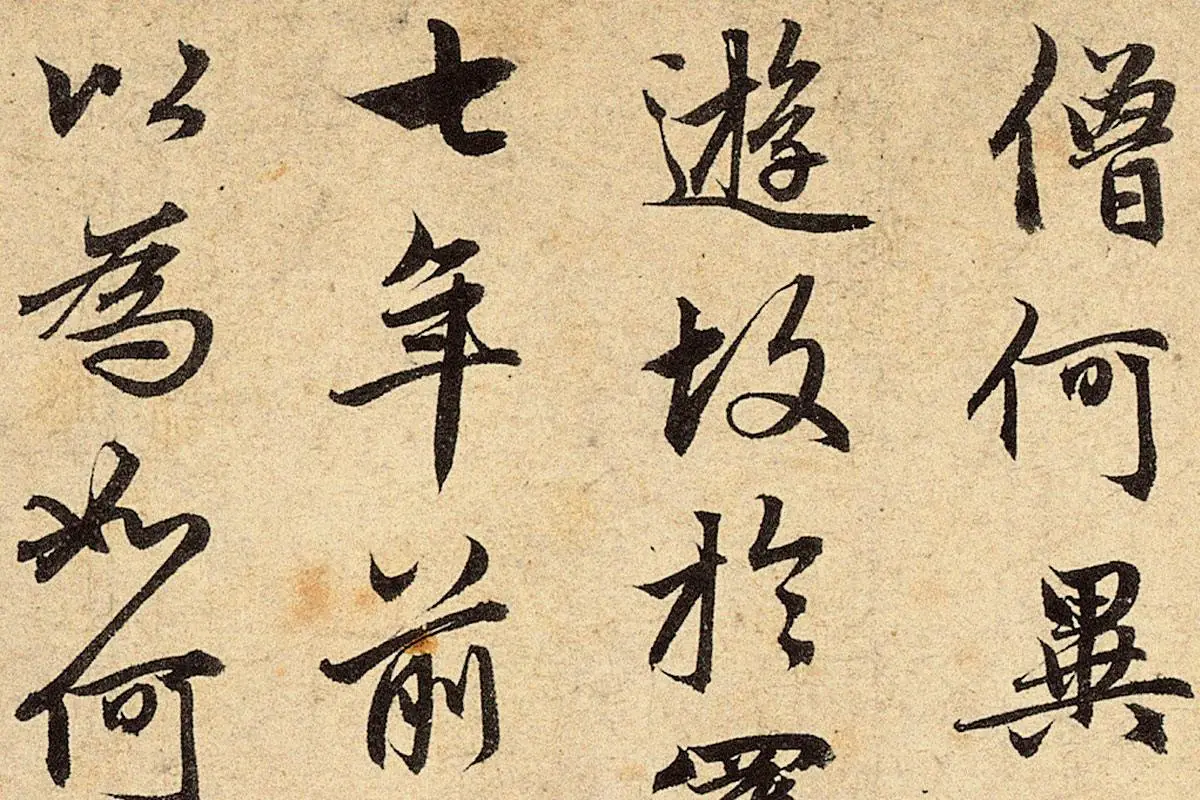 僧何異
遊故於
七年前
以為如何